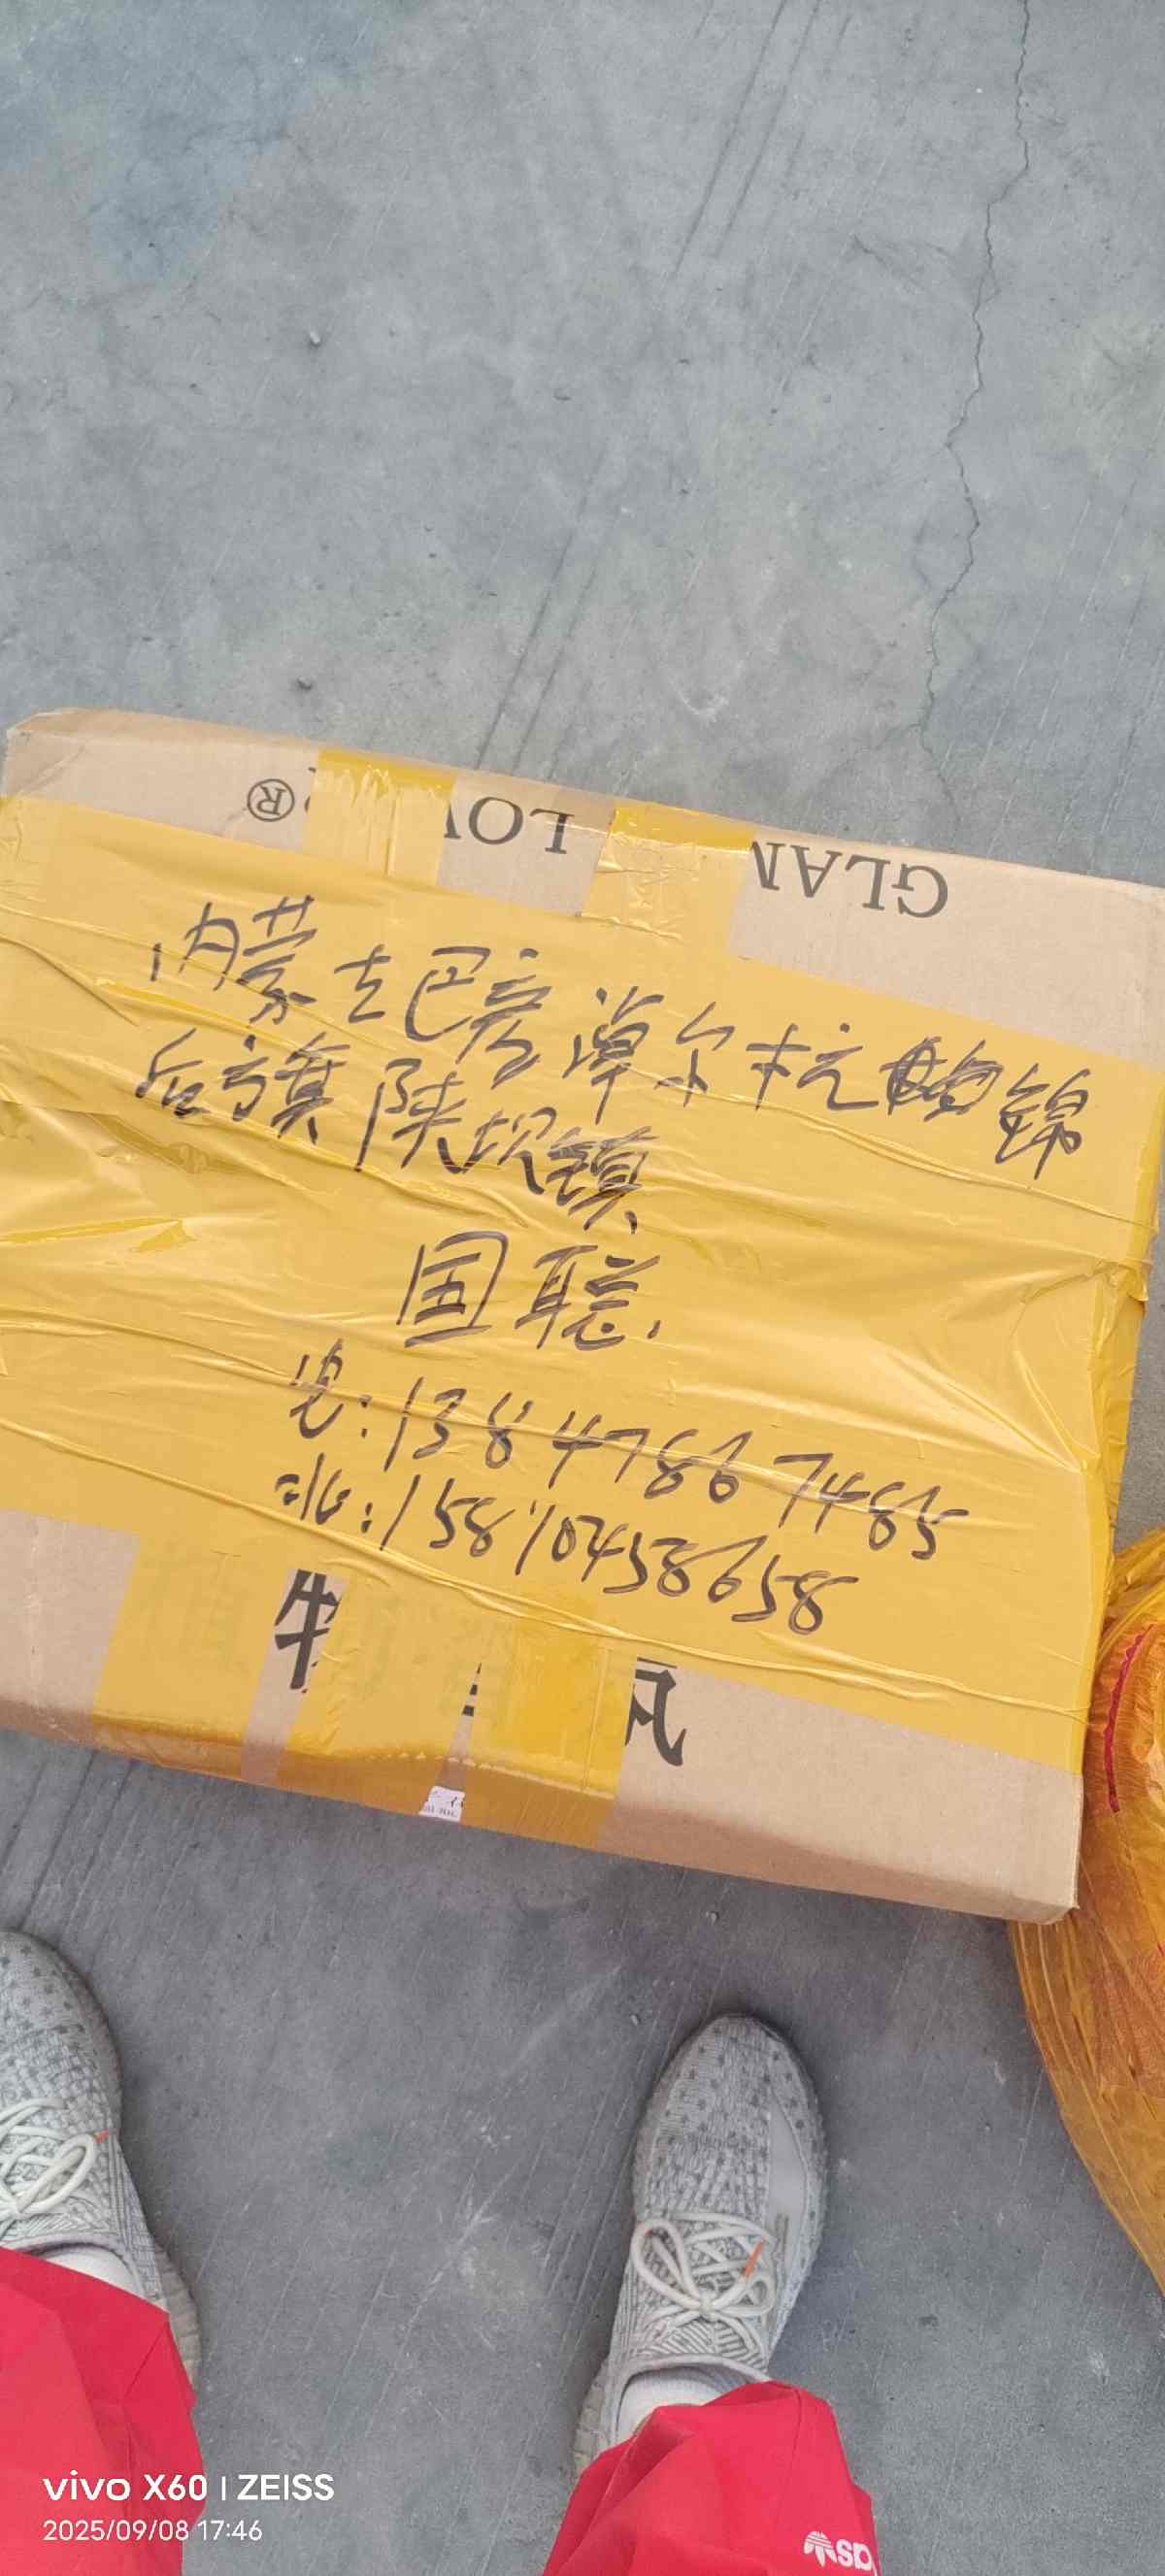 ® LOV GLAM
内蒙古巴彦淖尔杭锦
后旗陕坝镇
国聪
电:13847867485
北:15810458658
vivo X60 | ZEISS
2025/09/08 17:46